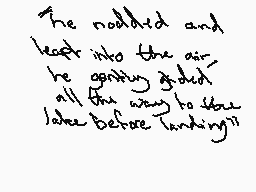 "he nodded and
leapt into the air
he gently glided
all the way to the
lake before landing"